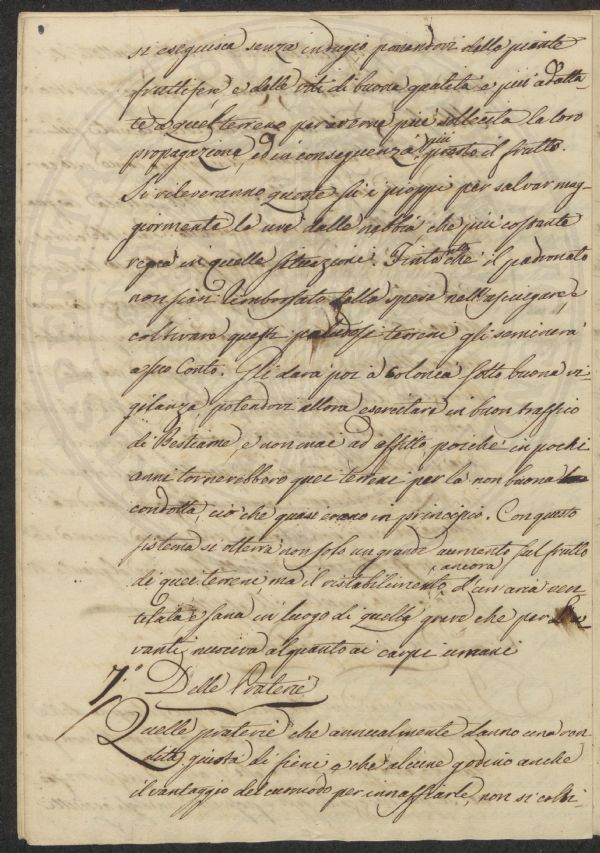 si eseguisca senza indugio ponendovi delle piante
fruttifere, e delle viti di buona qualità e più adatta-
te a quel terreno per averne più sollecita la loro
propagazione, ed in conseguenza più presto il frutto.
Si rileveranno queste su i pioppi per salvar mag-
giormente le uve dalle nebbie che più costante
regna in quelle situazioni. Finta che il padronato
non siasi rimborsato della spesa nell'asciugare, e
coltivare questi paludosi terreni gli seminerà
a suo Conto. Gli darà poi a Colonia sotto buona vi-
gilanza, potendovi allora esercitare un buon traffico
di Bestiame, e non mai ad affitto perchè in pochi
anni tornerebbero quei terreni per la non buona
condotta, ciò che quasi erano in principio. Con questo
sistema si otterrà non solo un grande aumento sul frutto
di quei terreni, ma il ristabilimento ancora d'un aria ven-
tilata e sana in luogo di quella grave che per
vanti nuoceva alquanto ai corpi umani
7.° Delle Praterie
Quelle praterie che annualmente danno una ren-
dita giusta di fieni e che alcune godino anche
il vantaggio del comodo per innaffiarle, non si colti-